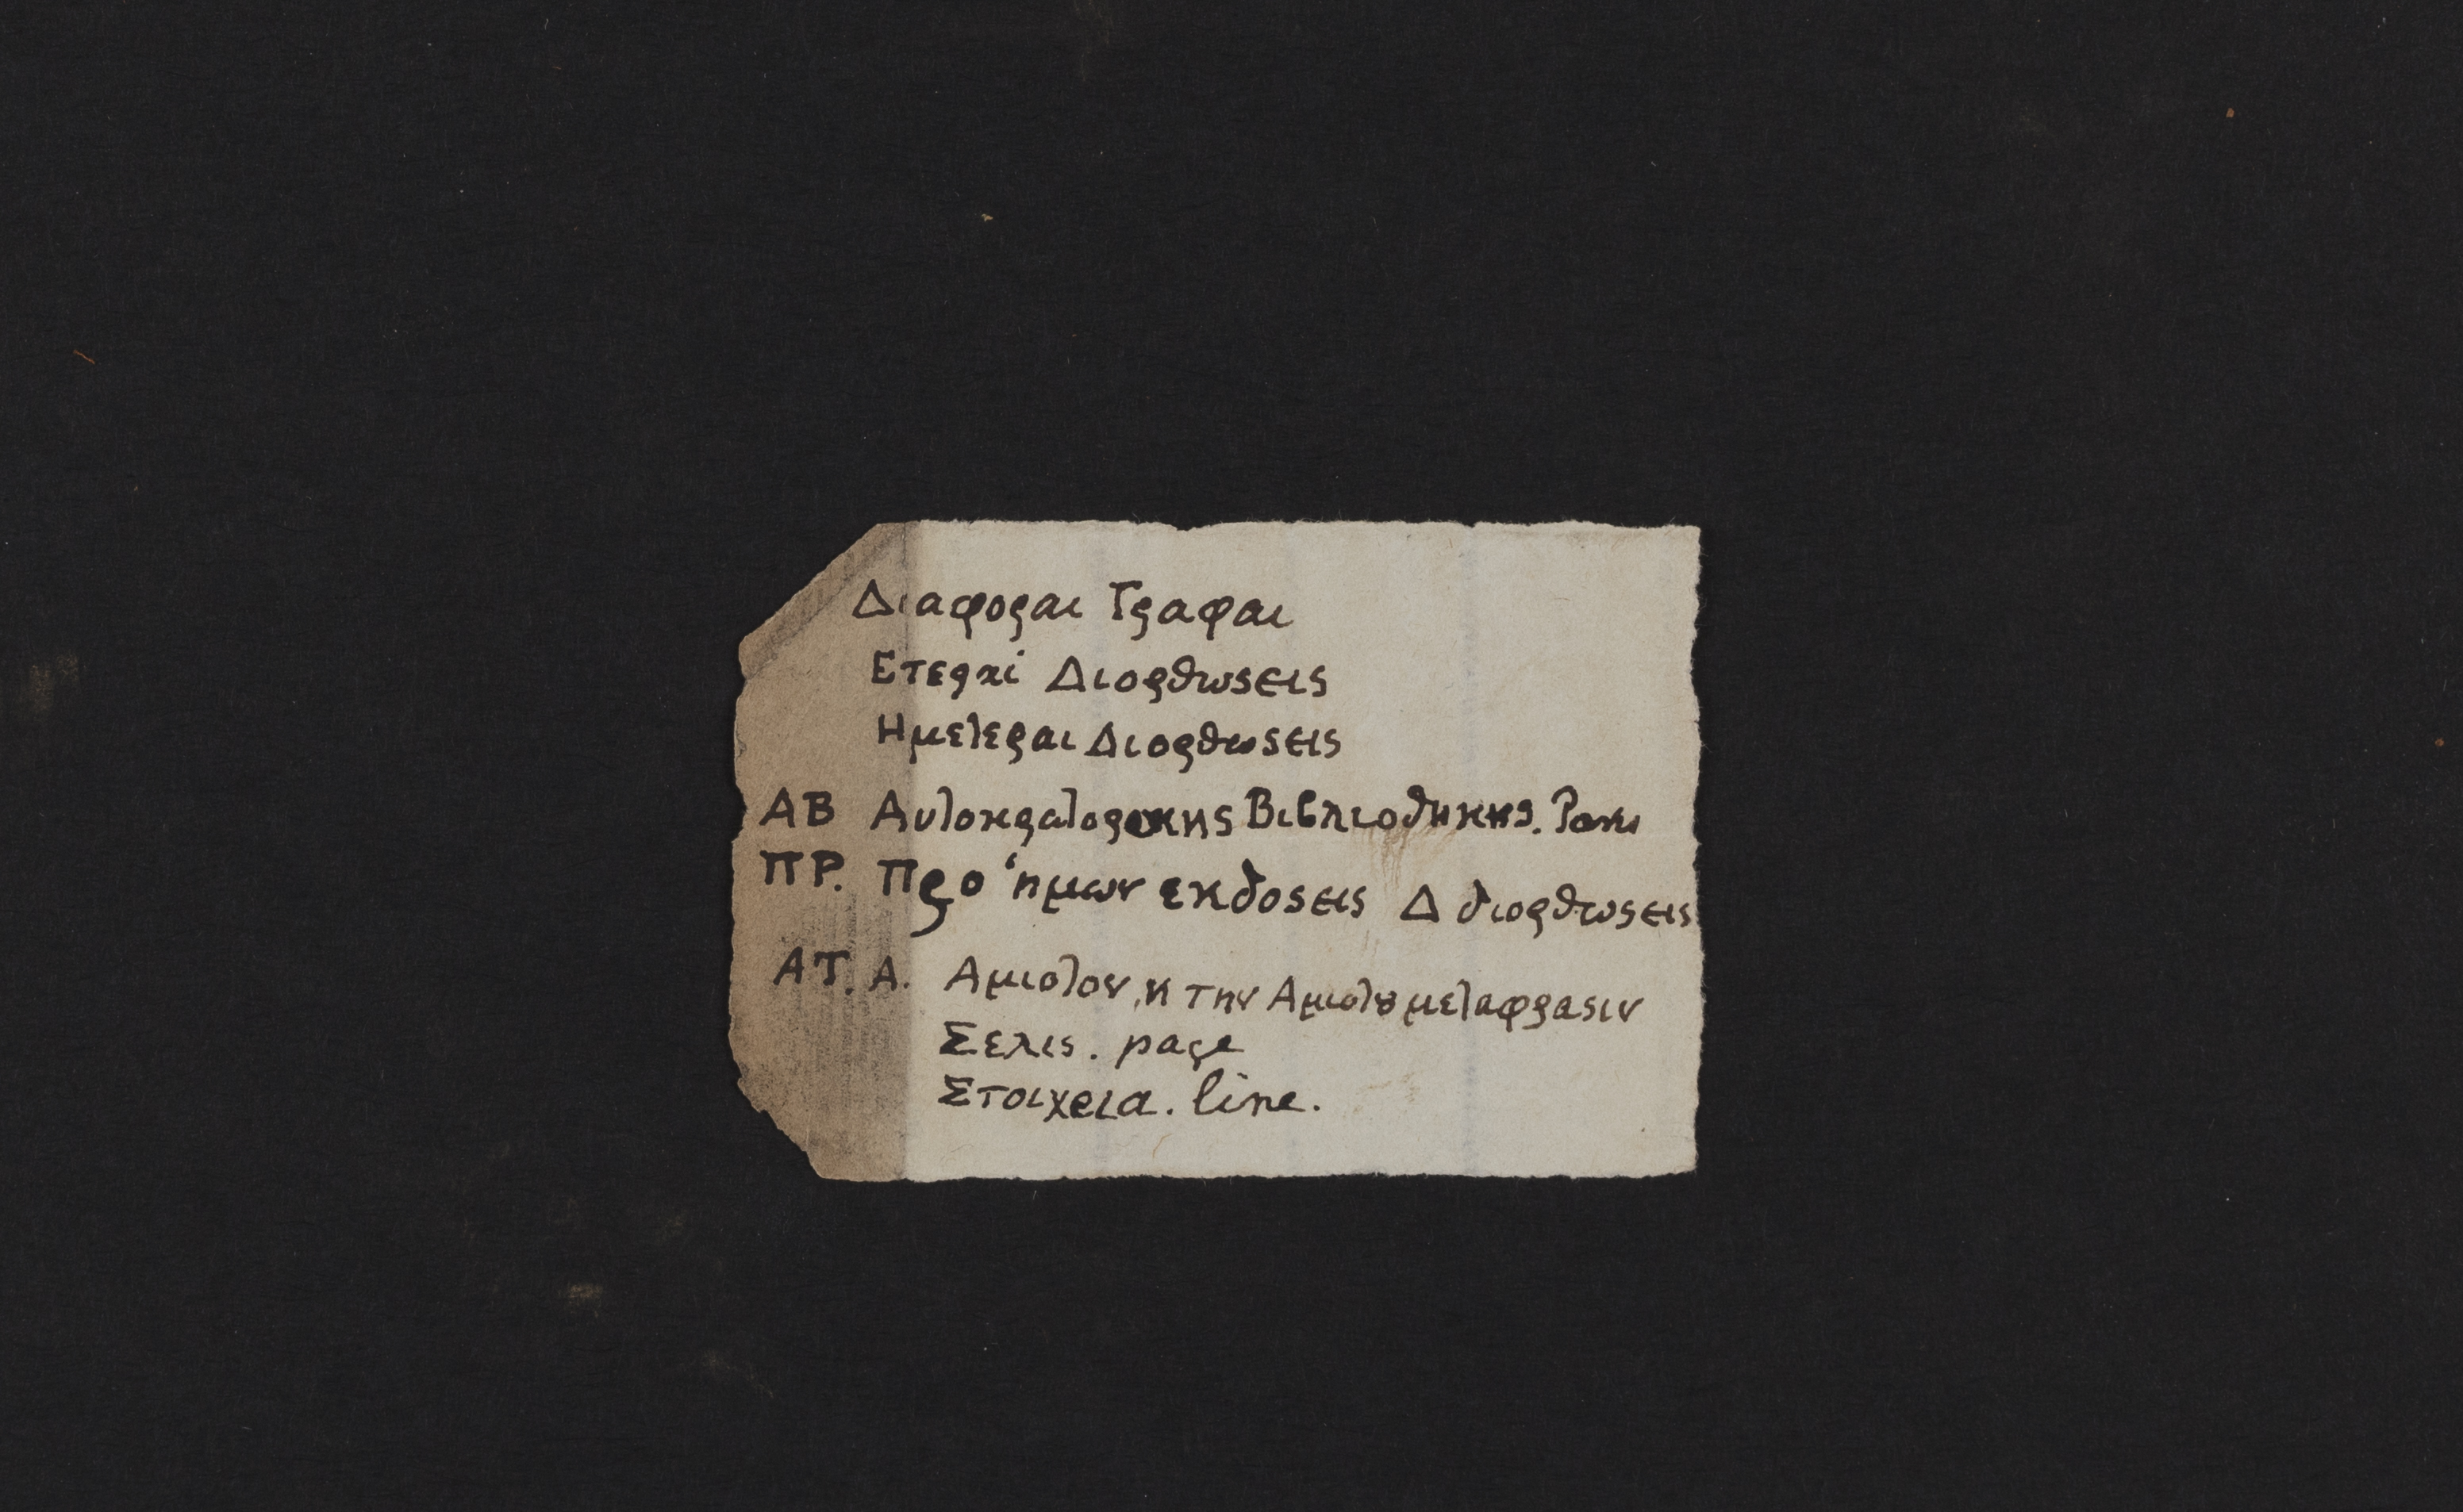 Διαφοραι Γραφαι
Ετεραί Διορθωσεις
Ημετεραι Διορθωσεις
ΑΒ Αυτοκρατορικης Βιβλιοθηκης.
ΠΡ. Προ ‘ημων εκδοσεις Δ διορθωσεις
ΑΤ. Α. Αμιοτον, κ την Αμιοτȣ μεταφρασιν
Σελις. page
Στοιχεια. line.